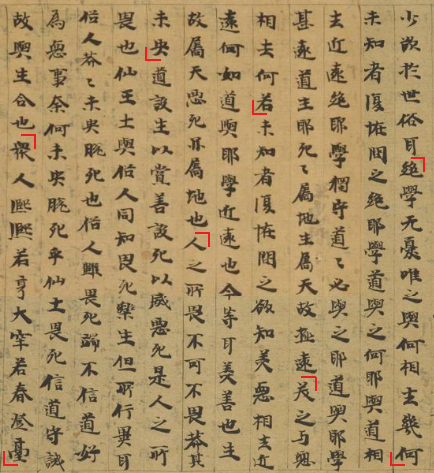 少欲於世俗耳絕學无憂唯之與何相去幾何
未知者復怪問之絕耶學道與之何耶道相
去近遠絕耶學獨守道〻必與之耶道與耶學
甚遠道生耶死〻屬地生屬天故極遠美之与惡
相去何若未知者復怪問之欲知美惡相去近
遠何如道與耶學近遠也今等耳美善也生
故屬天惡死亦屬地也人之所畏不可不畏莽其
未央道設生以賞善設死以威惡死是人之所
畏也仙王士與俗人同知畏死樂生但所行異耳
俗人莽〻未央脫死也俗人雖畏死端不信道好
為惡事奈何未央脫死乎仙士畏死信道守誡
故與生合也衆人熙熙若享大牢若春登臺